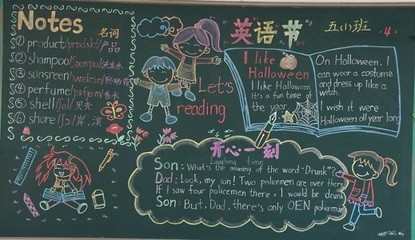 Notes 名词
① product/prodʌkt/产品
② shampoo/ʃæmpuː/洗发水
③ sunsreen/
④ perfume/
⑤ shell/ʃel/贝壳
⑥ shore/ʃɔː/岸,滨
Let's
reading
英语节
五(1)班
4
I like
Halloween
I like Halloween.
It's a fun time of
the year.
On Halloween. I
can wear a costume
and dress up like a
witch.
I wish it were
Halloween all year long
开心一刻
Laughing time
Son: What's the meaning of the word "Drunk"?
Dad: Look, my son! Two policemen are over there
If I saw four policemen there, I would be drunk
Son: But, Dad, there's only OEN policeman